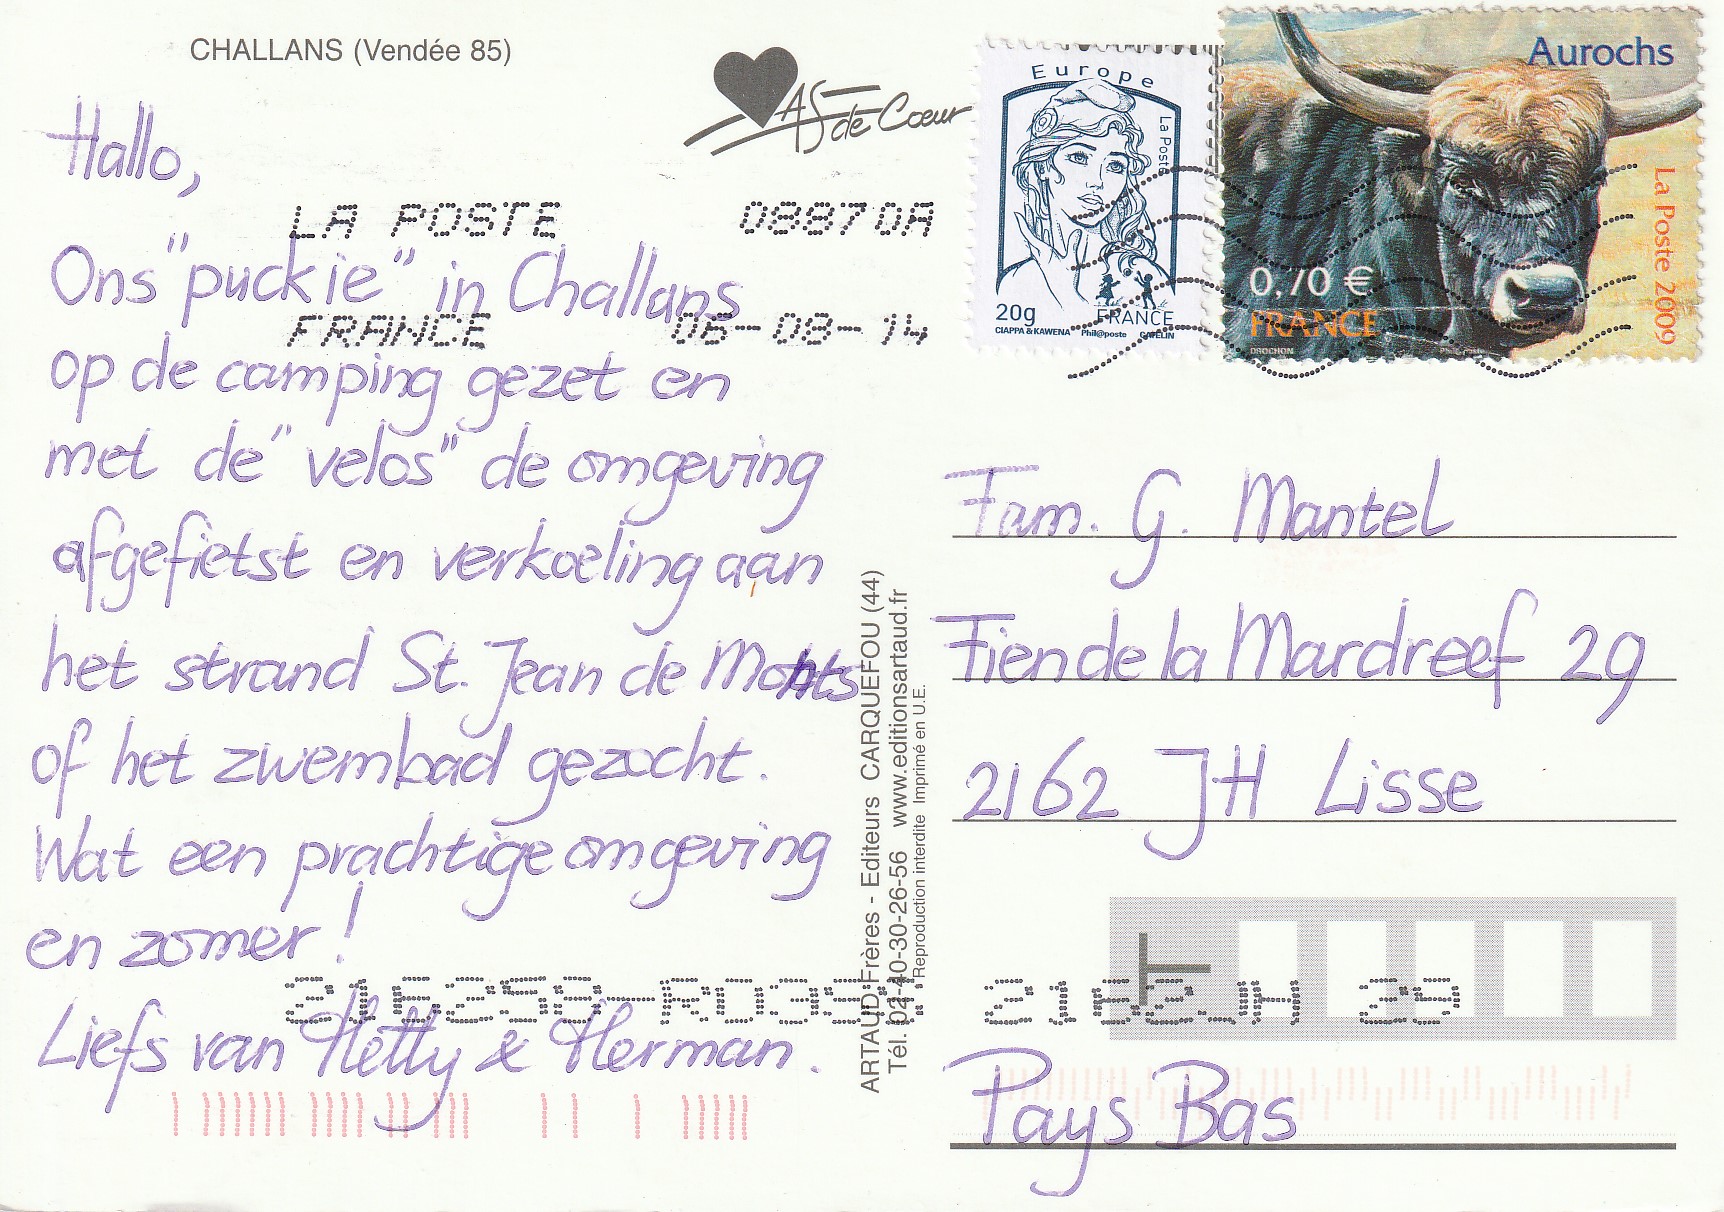 CHALLANS (Vendée 85)
AS de Cœur
Europe
La Poste
20g
FRANCE
CIAPPA & KAWENA Phil@poste
Aurochs
La Poste 2009
0,70 €
FRANCE
DROCHON Phil@poste
LA POSTE 08870A
FRANCE 06-08-14
Hallo,
Ons "puckie" in Challans
op de camping gezet en
met de "velos" de omgeving
afgefietst en verkoeling aan
het strand St. Jean de Monts
of het zwembad gezocht.
Wat een prachtige omgeving
en zomer!
Liefs van Hetty & Herman.
ARTAUD Frères - Editeurs CARQUEFOU (44)
Tél. 02-40-30-26-56 www.editionsartaud.fr
Reproduction interdite Imprimé en U.E.
Fam. G. Mantel
Fien de la Mardreef 29
2162 JH Lisse
2162JH 29
Pays Bas